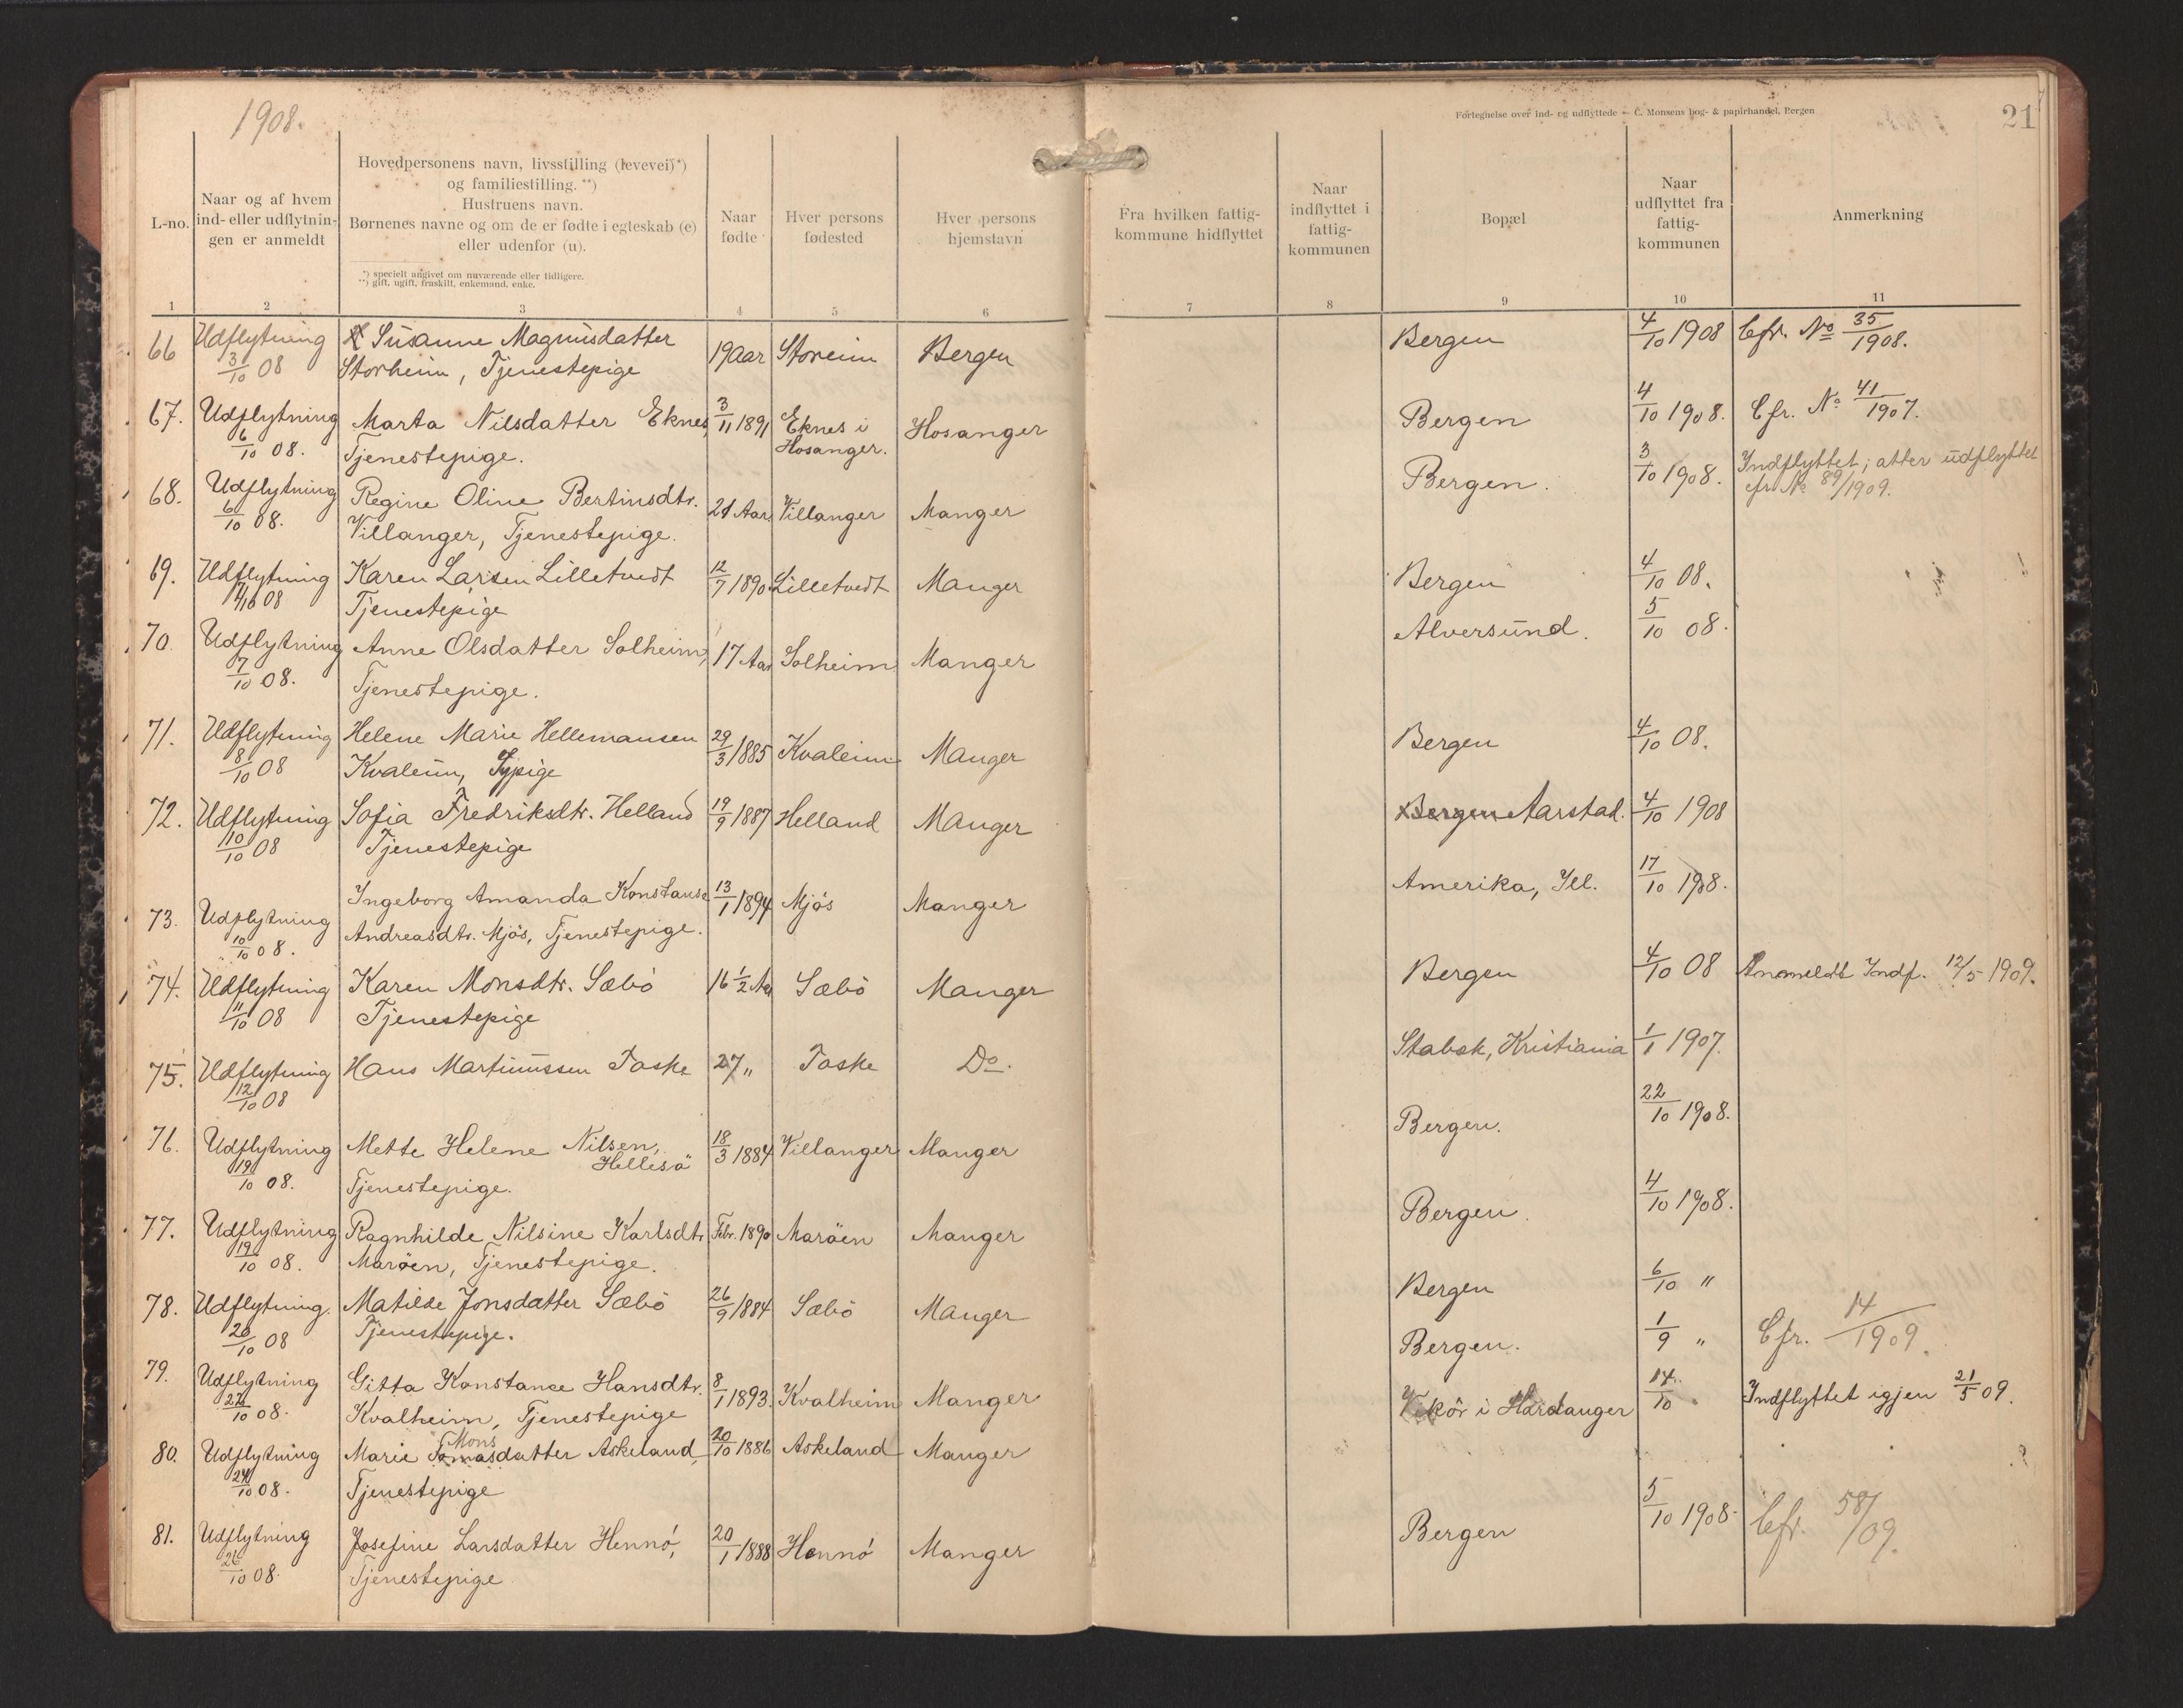 1908.
Fortegnelse over ind- og udflyttede — C. Monsens bog- & papirhandel, Bergen
21
L-no.
Naar og af hvem
ind- eller udflytnin-
gen er anmeldt
Hovedpersonens navn, livsstilling (levevei)*)
og familiestilling. **)
Hustruens navn.
Børnenes navne og om de er fødte i egteskab (e)
eller udenfor (u).
*) specielt angivet om nuværende eller tidligere.
**) gift, ugift, fraskilt, enkemand, enke.
Naar
fødte
Hver persons
fødested
Hver persons
hjemstavn
Fra hvilken fattig-
kommune hidflyttet
Naar
indflyttet i
fattig-
kommunen
Bopæl
Naar
udflyttet fra
fattig-
kommunen
Anmerkning
1 2 3 4 5 6 7 8 9 10 11
66 Udflytning Susanne Magnusdatter 19 Aar Storeim Bergen Bergen 4/10 1908 Cfr. No 35/1908.
3/10 08 Storheim, Tjenestepige
67. Udflytning Marta Nilsdatter Eknes, 3/11 1891 Eknes i Hosanger Bergen 4/10 1908. Cfr. No 41/1907.
6/10 08. Tjenestepige. Hosanger.
68. Udflytning Regine Oline Bertinsdtr. 21 Aar Villanger Manger Bergen. 3/10 1908. Indflyttet; atter udflyttet
6/10 08. Villanger, Tjenestepige. cfr. No 89/1909.
69. Udflytning Karen Larsen Lilletvedt 12/7 1890 Lilletvedt Manger Bergen 4/10 08.
7/10 08 Tjenestepige
70. Udflytning Anne Olsdatter Solheim, 17 Aar Solheim Manger Alversund. 5/10 08.
7/10 08. Tjenestepige.
71. Udflytning Helene Marie Hellemansen 29/3 1885 Kvaleim Manger Bergen 4/10 08.
8/10 08 Kvaleim, Sypige
72. Udflytning Sofia Fredriksdtr. Helland 19/9 1887 Helland Manger Bergen Aarstad. 4/10 1908
10/10 08 Tjenestepige
Ingeborg Amanda Konstanse 13/1 1894 Mjös Manger Amerika, Ill. 17/10 1908.
73. Udflytning Andreasdtr. Mjös, Tjenestepige.
10/10 08.
74. Udflytning Karen Monsdtr. Sæbö 16 1/2 Aar Sæbö Manger Bergen 4/10 08 Anmeldt Indf. 12/5 1909.
11/10 08 Tjenestepige
75. Udflytning Hans Martinussen Toske 27 " Toske Do. Stabæk, Kristiania 1/1 1907.
12/10 08
76. Udflytning Mette Helene Nilsen, 18/3 1884 Villanger Manger Bergen. 22/10 1908.
Hellesö
19/10 08. Tjenestepige.
77. Udflytning Ragnhilde Nilsine Karlsdtr Febr. 1890 Maröen Manger Bergen. 4/10 1908.
19/10 08. Maröen, Tjenestepige.
78. Udflytning. Matilde Jonsdatter Sæbö 26/9 1884 Sæbö Manger Bergen 6/10 "
20/10 08 Tjenestepige.
79. Udflytning Gitta Konstance Hansdtr. 8/1 1893. Kvalheim Manger Bergen. 1/9 " Cfr. 14/1909.
22/10 08. Kvalheim, Tjenestepige
Mons
80. Udflytning Marie Tomasdatter Askeland, 20/10 1886 Askeland Manger Vikör i Hardanger 14/10 " Indflyttet igjen 21/5 09.
24/10 08. Tjenestepige
81. Udflytning Josefine Larsdatter Hennö, 20/1 1888 Hennö Manger Bergen 5/10 1908. Cfr. 58/09.
26/10 08. Tjenestepige